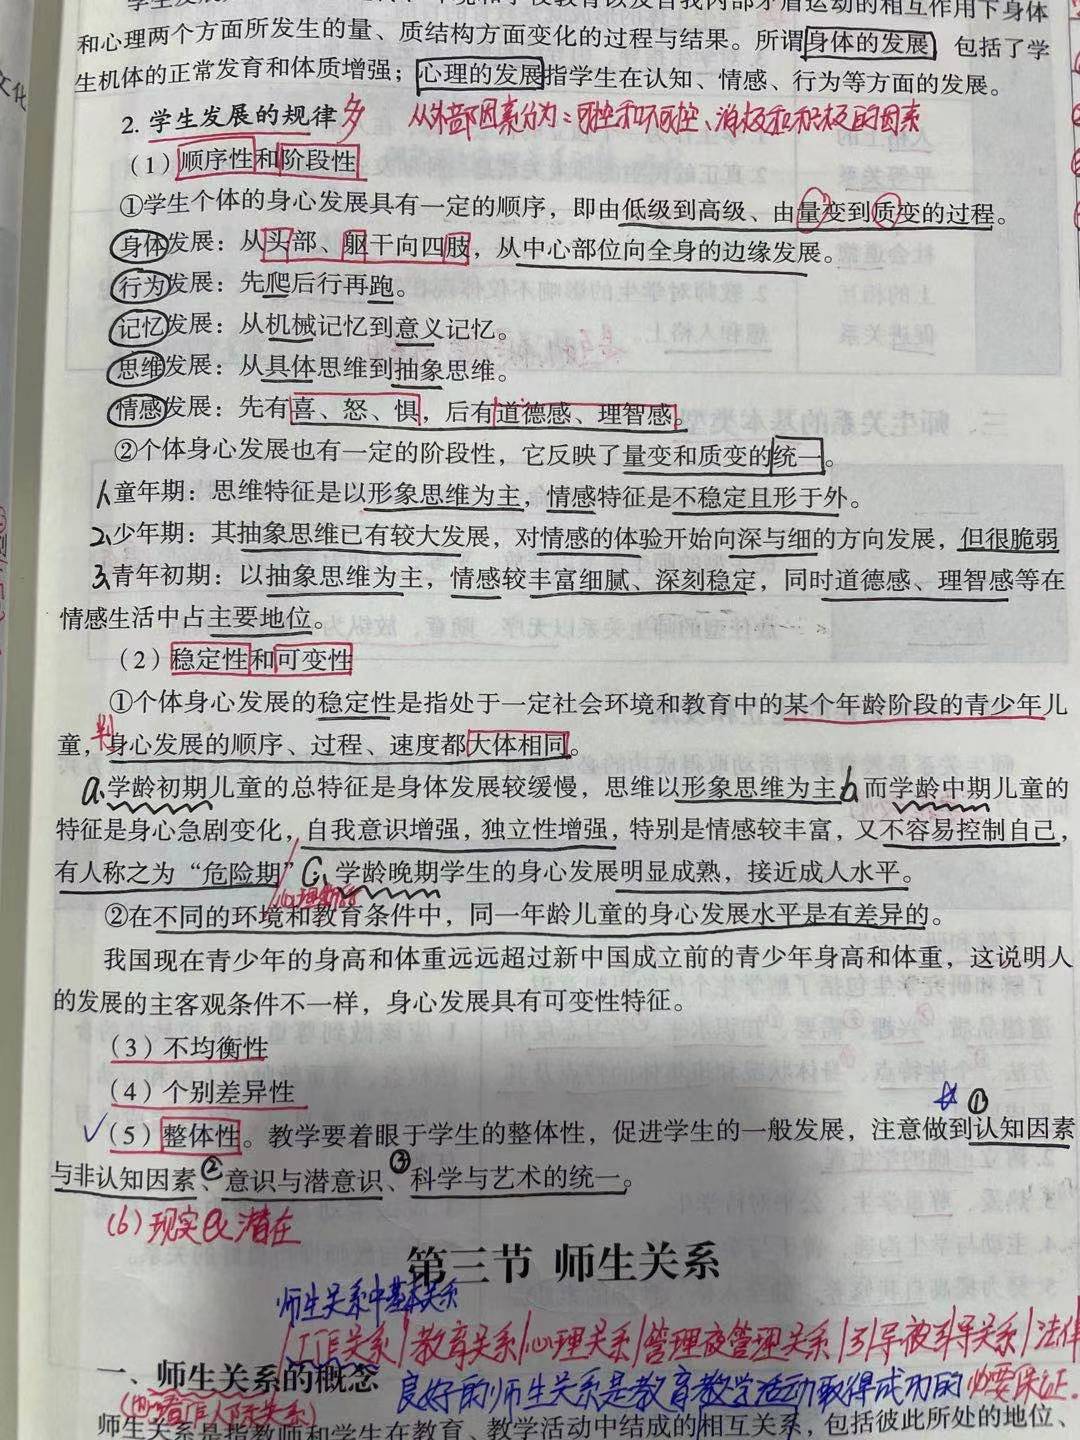 和心理两个方面所发生的量、质结构方面变化的过程与结果。所谓身体的发展,包括了学
生机体的正常发育和体质增强;心理的发展指学生在认知、情感、行为等方面的发展。
2. 学生发展的规律 多 从外部因素分为:可控和不可控、消极和积极的因素
(1)顺序性和阶段性
①学生个体的身心发展具有一定的顺序,即由低级到高级、由量变到质变的过程。
身体发展:从头部、躯干向四肢,从中心部位向全身的边缘发展。
行为发展:先爬后行再跑。
记忆发展:从机械记忆到意义记忆。
思维发展:从具体思维到抽象思维。
情感发展:先有喜、怒、惧,后有道德感、理智感。
②个体身心发展也有一定的阶段性,它反映了量变和质变的统一。
1、童年期:思维特征是以形象思维为主,情感特征是不稳定且形于外。
2、少年期:其抽象思维已有较大发展,对情感的体验开始向深与细的方向发展,但很脆弱
3、青年初期:以抽象思维为主,情感较丰富细腻、深刻稳定,同时道德感、理智感等在
情感生活中占主要地位。
(2)稳定性和可变性
①个体身心发展的稳定性是指处于一定社会环境和教育中的某个年龄阶段的青少年儿
童,判身心发展的顺序、过程、速度都大体相同。
a、学龄初期儿童的总特征是身体发展较缓慢,思维以形象思维为主b、而学龄中期儿童的
特征是身心急剧变化,自我意识增强,独立性增强,特别是情感较丰富,又不容易控制自己,
有人称之为“危险期”C、学龄晚期学生的身心发展明显成熟,接近成人水平。
心理断乳
②在不同的环境和教育条件中,同一年龄儿童的身心发展水平是有差异的。
我国现在青少年的身高和体重远远超过新中国成立前的青少年身高和体重,这说明人
的发展的主客观条件不一样,身心发展具有可变性特征。
(3)不均衡性
(4)个别差异性
✓(5)整体性。教学要着眼于学生的整体性,促进学生的一般发展,注意做到①认知因素
与非认知因素②、意识与潜意识③、科学与艺术的统一。
(6)现实 潜在
第三节 师生关系
师生关系中基本关系
工作关系/教育关系/心理关系/管理被管理关系/引导被引导关系/法律
一、师生关系的概念 良好的师生关系是教育教学活动取得成功的必要保证.
师生关系是指教师和学生在教育、教学活动中结成的相互关系,包括彼此所处的地位、